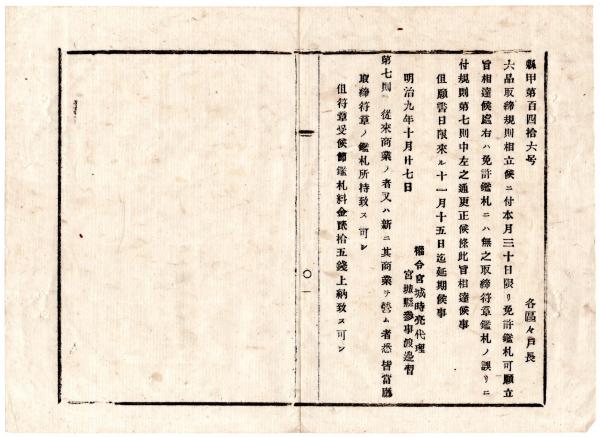 縣甲第百四拾六号
各區々戸長
六品取締規則相立候ニ付本月三十日限リ免許鑑札可願立
旨相達候處右ハ免許鑑札ニハ無之取締符章鑑札ノ誤リニ
付規則第七則中左之通更正候條此旨相達候事
但願書日限來ル十一月十五日迄延期候事
明治九年十月廿七日
權令宮城時亮代理
宮城縣參事渡邊
第七則 從來商業ノ者又ハ新ニ其商業ヲ營ム者悉皆當廳
取締符章ノ鑑札所持致ス可シ
但符章受候節鑑札料金貳拾五錢上納致ス可シ
〇一